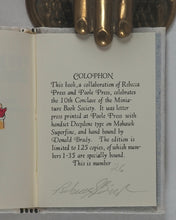 COLOPHON
This book, a collaboration of Rebecca
Press and Poole Press, celebrates
the 10th Conclave of the Minia-
ture Book Society. It was letter
press printed at Poole Press with
handset Deepdene type on Mohawk
Superfine, and hand bound by
Donald Brady. The edition is
limited to 125 copies, of which
numbers 1-35 are specially bound.
This is number
26